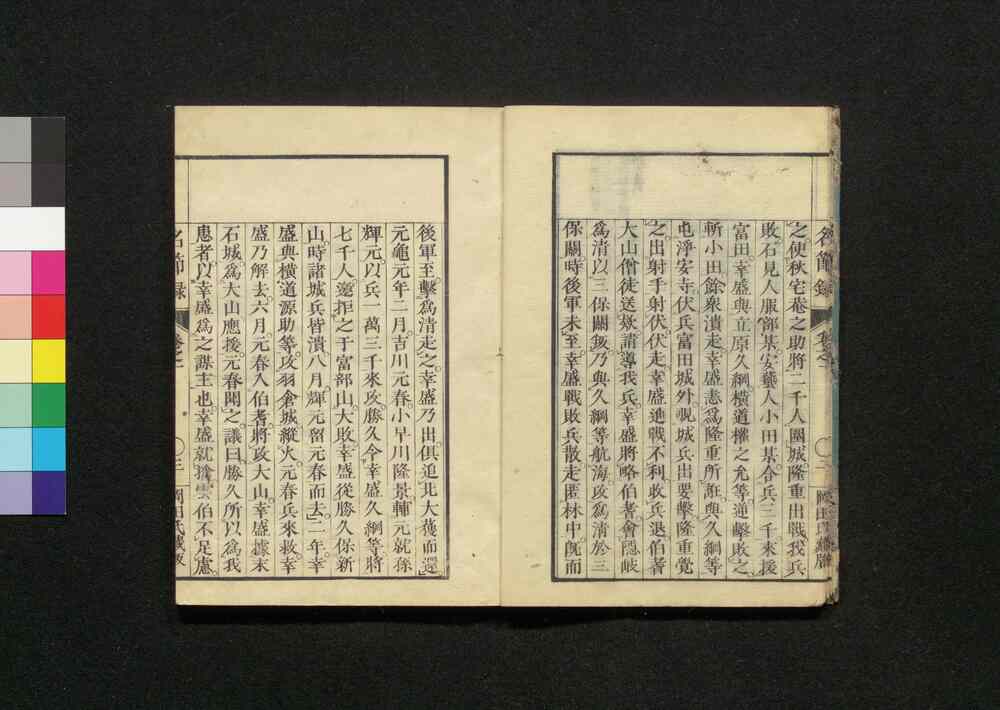 名節録
之使秋宅菴之助將二千人圍城隆重出戰我兵
敗石見人服部某安藝人小田某合兵三千來援
富田幸盛與立原久綱橫道權之允等逆擊敗之
斬小田餘衆潰走幸盛恚爲隆重所誑與久綱等
屯淨安寺伏兵富田城外覘城兵出要擊隆重覺
之出射手射伏伏走幸盛進戰不利收兵退伯耆
大山僧徒送欵請導我兵幸盛將略伯耆會隱岐
爲淸以三保關叛乃與久綱等航海攻爲淸於三
保關時後軍未至幸盛戰敗兵散走匿林中旣而
後軍至擊爲淸走之幸盛乃出俱追北大獲而還
元龜元年二月吉川元春小早川隆景輔元就孫
輝元以兵一萬三千來攻勝久令幸盛久綱等將
七千人邀拒之于富部山大敗幸盛從勝久保新
山時諸城兵皆潰八月輝元留元春而去二年幸
盛與橫道源助等攻羽倉城縱火元春兵來救幸
盛乃解去六月元春入伯耆將攻大山幸盛據末
石城爲大山應援元春聞之議曰勝久所以爲我
患者以幸盛爲之謀主也幸盛就擒雲伯不足慮
名節録
岡田氏藏版